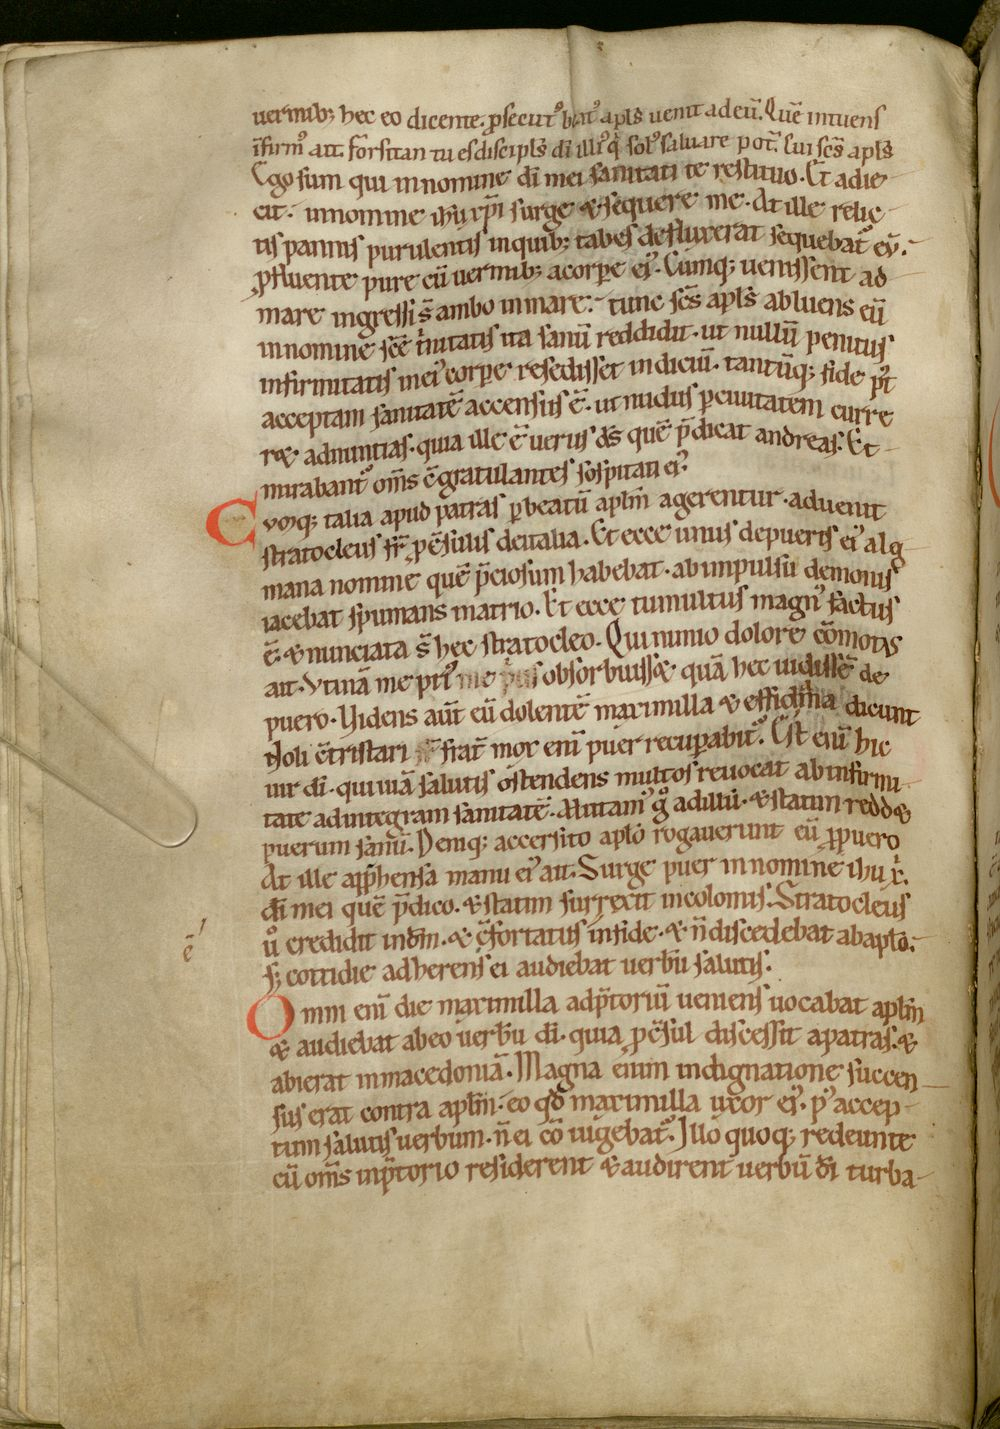 uermib; hec eo dicente. ꝓsecut᷒ beat᷒ apl̅s uenit ad eu̅. Que̅ intuens
i̅firm᷒ ait. forsitan tu es discipl̅s di̅ illi᷒ q̇ sol᷒ saluare pot̅. Cui sc̅s apl̅s
Ego sum qui in nomine di̅ mei sanitati te restituo. Et adie
cit. in nomine ihu xp̅i surge & sequere me. At ille relic
tis pannis purulentis in quib; tabes defluxerat sequebat᷒ eu̅.
ꝓfluente pure cu̅ uermib; a corꝑe ei᷒. Cumq; uenissent ad
mare ingressi s̅ ambo in mare. tunc sc̅s apl̅s abluens eu̅
in nomine sce̅ t̍nitatis ita sanu̅ reddidit. ut nullu̅ penitus
infirmitatis in ei᷒ corꝑe resedisset indiciu̅. tantu̅q; fide p̅t
acceptam sanitate̅ accensus e̅. ut nudus ꝑ ciuitatem curre
r& adnuntias. quia ille e̅ uerus ds̅ que̅ p̅dicat andreas. Et
mirabant᷒ om̅s c̅gratulantes sospitati ei᷒.
Cvmq; talia apud patras ꝑ beatu̅ aplm̅ agerentur. aduenit
stratocleus fr̅ ꝓc̅sulis de italia. Et ecce unus de pueris ei᷒ alg
mana nomine que̅ p̅ciosum habebat. ab inpulsu demonis
iacebat spumans in atrio. Et ecce tumultus magn᷒ factus
e̅. & nunciata s̅ hec stratocleo. Qui nimio dolore co̅motus
ait. Vtina̅ me pri᷒ obsorbuiss& qua̅ hec uidisse̅ de
puero. Videns aut̅ eu̅ dolente̅ maximilla & effidima dicunt
Noli c̅tristari frat̅ mox eni̅ puer recuꝑabit᷒. Est eni̅ hic
uir di̅. qui uia̅ salutis ostendens multos reuocat ab infirmi
tate ad integram sanitate̅. Mittam᷒ g̊ ad illu̅. & statim redd&
puerum sanu̅. Deniq; accersito aplo̅ rogauerunt eu̅ ꝓ puero
At ille app̅hensa manu ei᷒ ait. Surge puer in nomine ihu x̍.
di̅ mei que̅ p̅dico. & statim surrexit incolomis. Stratocleus
u̅ credidit in dm̅. & c̅fortatus in fide. & n̅ discedebat ab aplo̅.
e̅
s; cottidie adherens ei audiebat uerbu̅ salutis.
Omni eni̅ die maximilla ad p̅toriu̅ ueniens uocabat aplm̅
& audiebat ab eo uerbu̅ di̅. quia ꝓc̅sul discessit a patras. &
abierat in macedonia̅. Magna enim indignatione succen
sus erat contra aplm̅. eo qd̅ maximilla uxor ei᷒. p᷒ accep
tum salutis uerbum. n̅ ei co̅iu̅gebat᷒. Illo quoq; redeunte
cu̅ om̅s in p̅torio residerent & audirent uerbu̅ di̅ turba